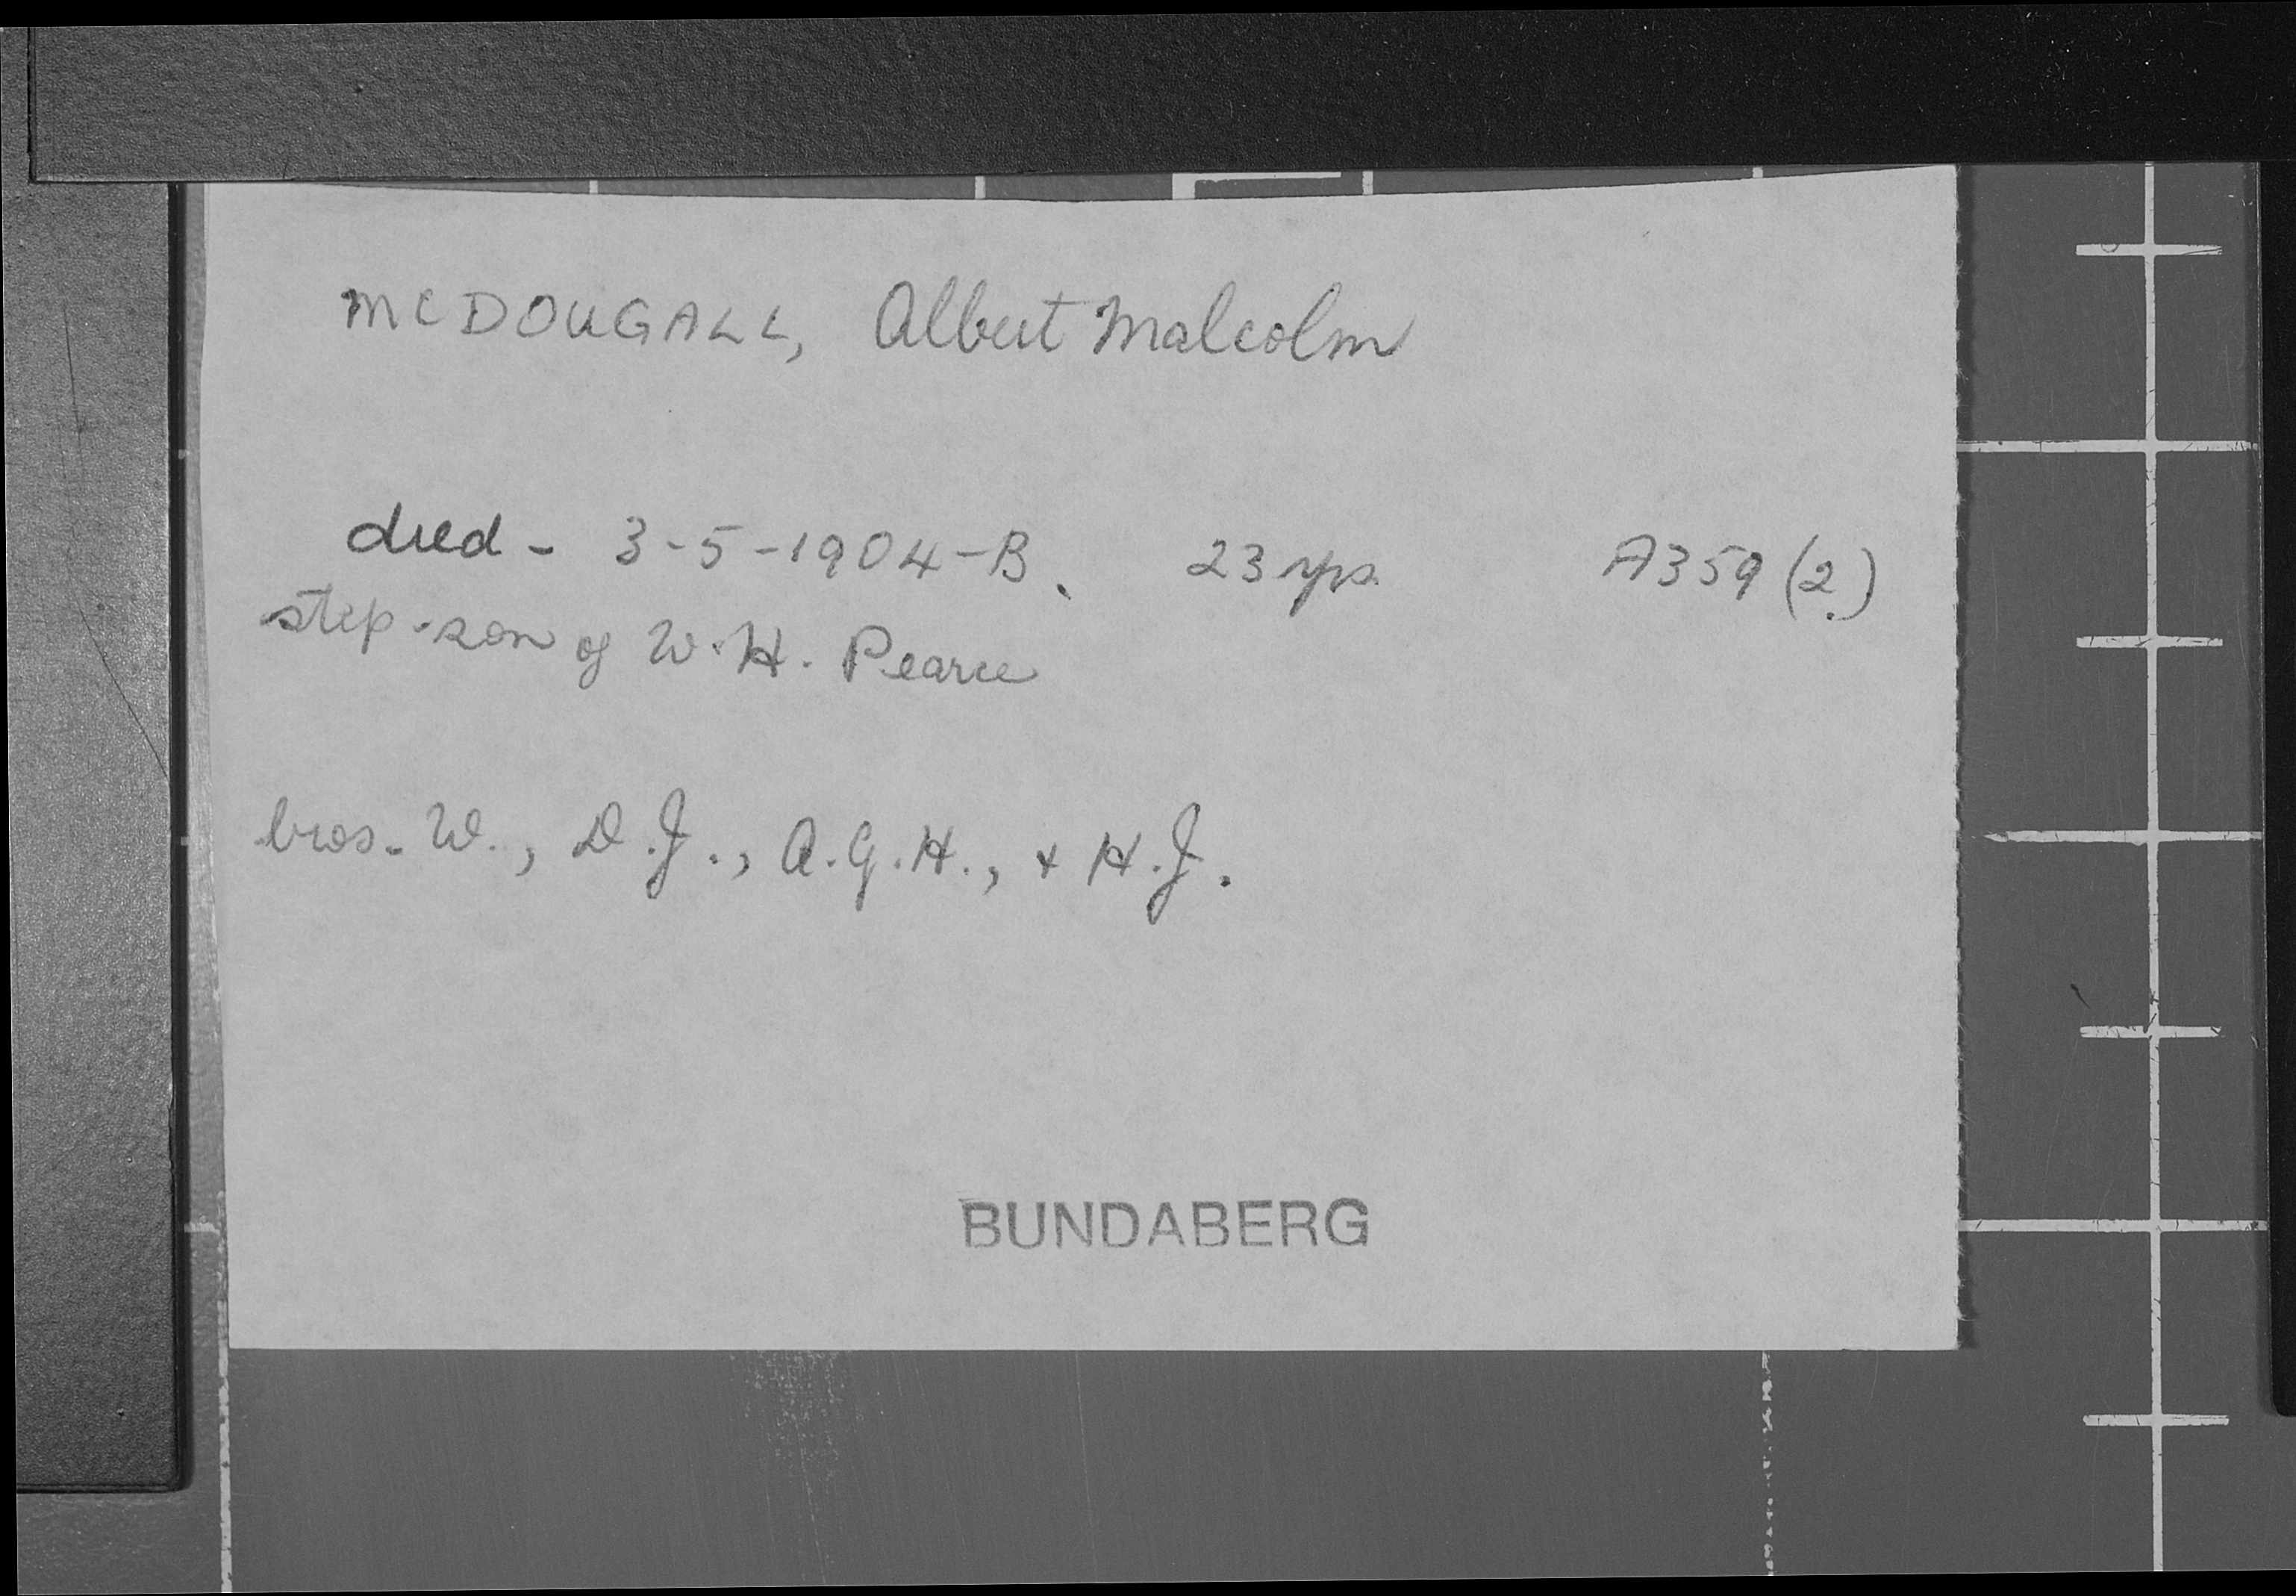 MCDOUGALL, Albert Malcolm
died - 3-5-1904-B. 23 yrs. A359 (2.)
step-son of W.H. Pearce
bros. W., D.J., A.G.H., + H.J.
BUNDABERG